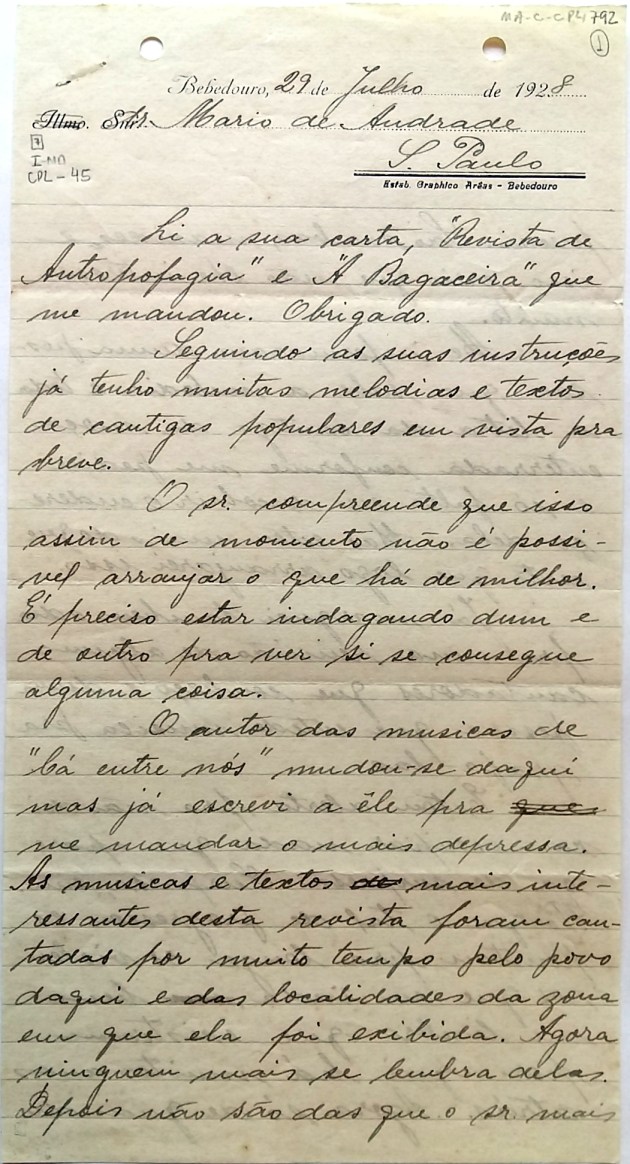 MA-C-CPL4792
1
Bebedouro, 29 de Julho de 1928
Illmo. Snr. Mario de Andrade
7
I-MA
CPL-45
S. Paulo
Estab. Graphico Arêas - Bebedouro
Li a sua carta, "Revista de
Antropofagia" e "A Bagaceira" que
me mandou. Obrigado.
Seguindo as suas instruções
já tenho muitas melodias e textos
de cantigas populares em vista pra
breve.
O sr. compreende que isso
assim de momento não é possi-
vel arranjar o que há de milhor.
É preciso estar indagando dum e
de outro pra ver si se consegue
alguma coisa.
O autor das musicas de
"Cá entre nós" mudou-se daquí
mas já escrevi a êle pra que
me mandar o mais depressa.
As musicas e textos de mais inte-
ressantes desta revista foram can-
tadas por muito tempo pelo povo
daqui e das localidades da zona
em que ela foi exibida. Agora
ninguem mais se lembra delas.
Depois não são das que o sr. mais